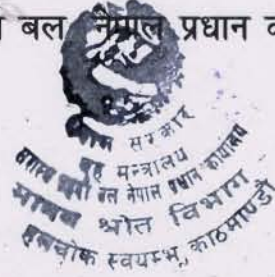 बल नेपाल प्रधान
नेपाल सरकार
गृह मन्त्रालय
सशस्त्र प्रहरी बल नेपाल प्रधान कार्यालय
मानव श्रोत विभाग
हलचोक स्वयम्भू, काठमाण्डौ